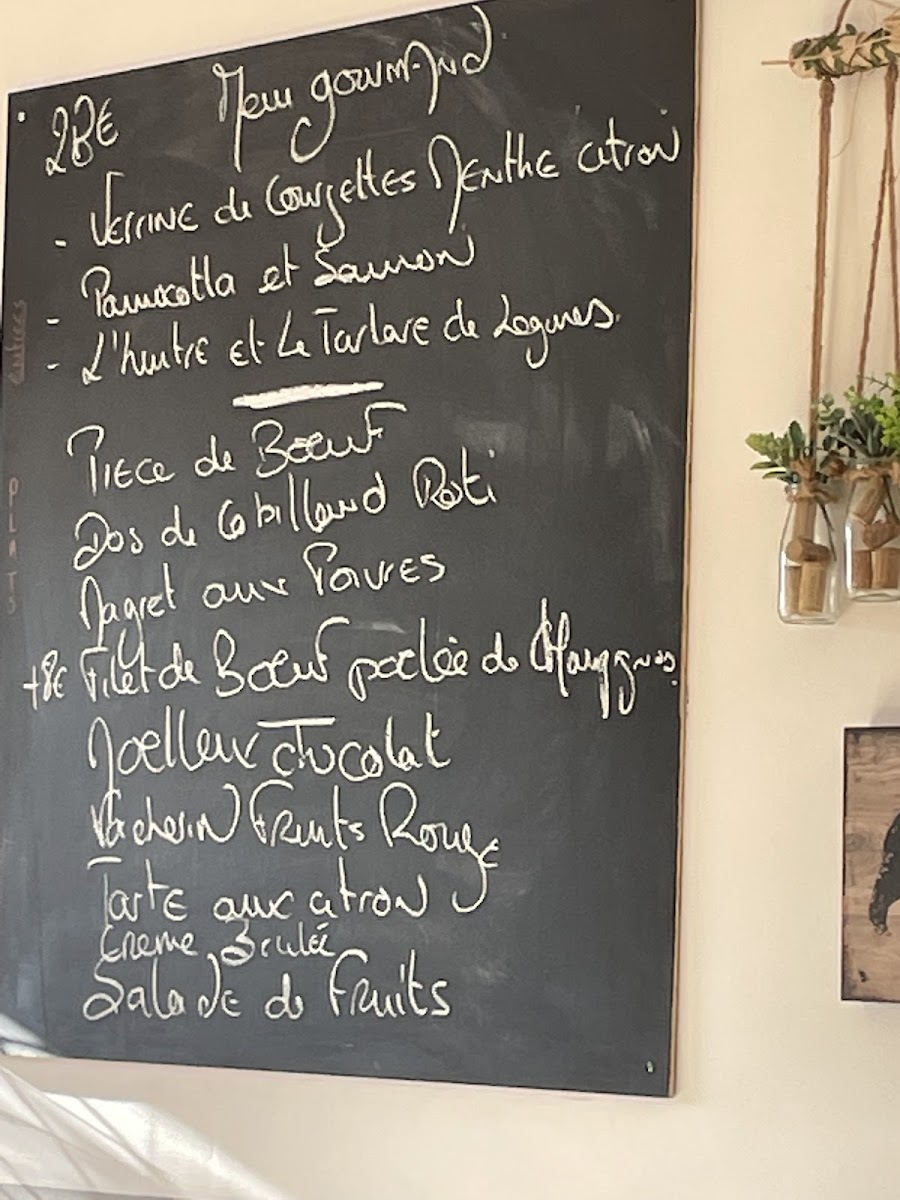 28€ Menu gourmand
- Verrine de Courgettes Menthe citron
- Pannacotta et Saumon
- L'huitre et Le Tartare de Legumes.
entrées
Piece de Boeuf
Dos de Cabillaud Roti
Magret aux Poivres
PLATS
+8€ Filet de Boeuf poelée de
Moelleux chocolat
Vacherin Fruits Rouge
Tarte aux citron
Creme Brulée
Salade de Fruits